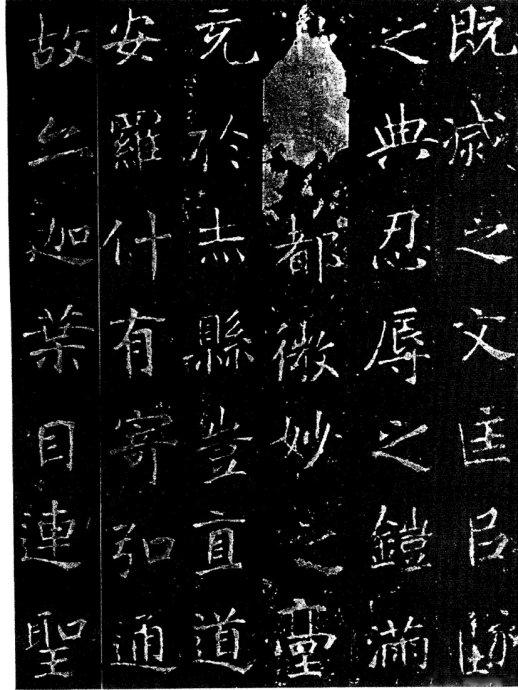 既滅之文匡㠯墜
之典忍辱之鎧滿
都微妙之臺
充於赤縣豈直道
安羅什有寄弘通
故亦迦葉目連聖